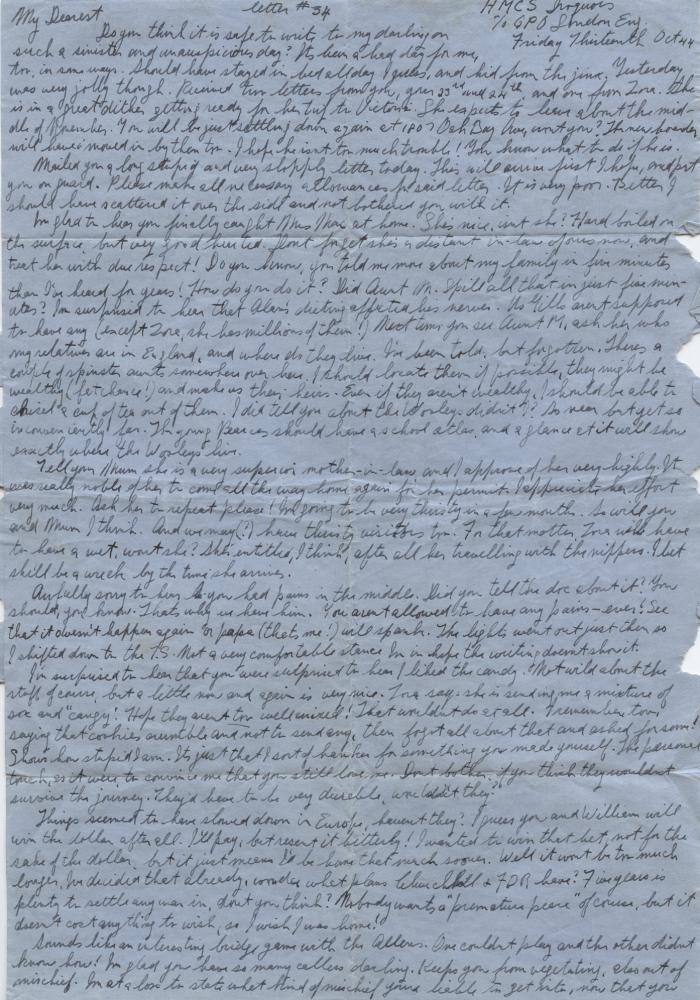 letter #34
HMCS Iroquois
My Dearest
℅ GPO London Eng.
Do you think it is safe to write to my darling on
Friday Thirteenth Oct 44
such a sinister and unauspicious day? Its been a bad day for me,
too, in some ways. Should have stayed in bed all day I guess, and hid from the jinx. Yesterday
was very jolly though. Received two letters from you, yours 23rd and 24th, and one from Zora. She
is in a great dither getting ready for her trip to Victoria. She expects to leave about the mid-
dle of November. You will be just settling down again at 1807 Oak Bay Ave, wont you? The new boarder
will have moved in by then too. I hope he isnt too much trouble! You know what to do if he is.
Mailed you a long stupid and very slopply letter today. This will arrive first I hope, and put
you on guard. Please make all necessary allowances for said letter. It is very poor. Better I
should have scattered it over the side and not bothered you with it.
Im glad to hear you finally caught Mrs at home. She's nice, isnt she? Hard boiled on
the surface, but very good hearted. Dont forget she's a distant in-law of yours now, and
treat her with due respect! Do you know, you told me more about my family in five minutes
than I've heard for years! How do you do it? Did Aunt M. spill all that in just five min-
utes? Im surprised to hear that Alan's dieting affected his nerves. Us Gills arent supposed
to have any (except Zora, she has millions of them!) Next time you see Aunt M, ask her who
my relatives are in England, and where do they live. I've been told, but forgotten. There's a
couple of spinster aunts somewhere over here. I should locate them if possible, they might be
wealthy (fat chance!) and make us their heirs. Even if they aren't wealthy, I should be able to
chisel a cup of tea out of them. I did tell you about the Worleys didn't I? So near but yet so
inconveniently far. The young Pearces should have a school atlas, and a glance at it will show
exactly where the Worleys live.
Tell your Mum she is a very superior mother-in-law and I approve of her very highly. It
was really noble of her to come all the way home again for her permit. I appreciate her effort
very much. Ask her to repeat please! Im going to be very thirsty in a few months. So will you
and Mum I think. And we may(?) have thirsty visitors too. For that matter, Zora will have
to have a wet, wont she? Shes entitled, I think, after all her travelling with the nippers. I bet
shell be a wreck by the time she arrives.
Awfully sorry to hear you had pains in the middle. Did you tell the doc about it? You
should, you know. Thats why we have him. You arent allowed to have any pains - ever! See
that it doesn't happen again or papa (thats me!) will spank. The lights went out just then so
I shifted down to the T.S. Not a very comfortable stance Im in hope the writing doesnt show it.
I'm surprised to hear that you were surprised to hear I liked the candy. Not wild about the
stuff of course, but a little now and again is very nice. Zora says she is sending me a mixture of
sox and "candy". Hope they arent too well mixed! That wouldnt do at all. I remember too
saying that cookies crumble and not to send any, then forgot all about that and asked for some!
Shows how stupid I am. It's just that I sort of hanker for something you made yourself. The personal
touch, as it were to convince me that you still love me. Dont bother, if you think they wouldnt
survive the journey. They'd have to be very durable, wouldn't they?
Things seemed to have slowed down in Europe, haven't they? I guess you and William will
win the dollar after all. I'll pay, but resent it bitterly! I wanted to win that bet, not for the
sake of the dollar, but it just means I'd be home that much sooner. Well it wont be too much
longer, I've decided that already. wonder what plans Churchill & FDR have? Five years is
plenty to settle any war in, dont you think? Nobody wants a "premature peace" of course, but it
doesn't cost anything to wish, so I wish I was home!
Sounds like an interesting bridge game with the Allens. One couldnt play and the other didnt
know how! Im glad you have so many callers darling. Keeps you from vegetating, also out of
mischief. Im at a loss to state what kind of mischief youre liable to get into, now that you